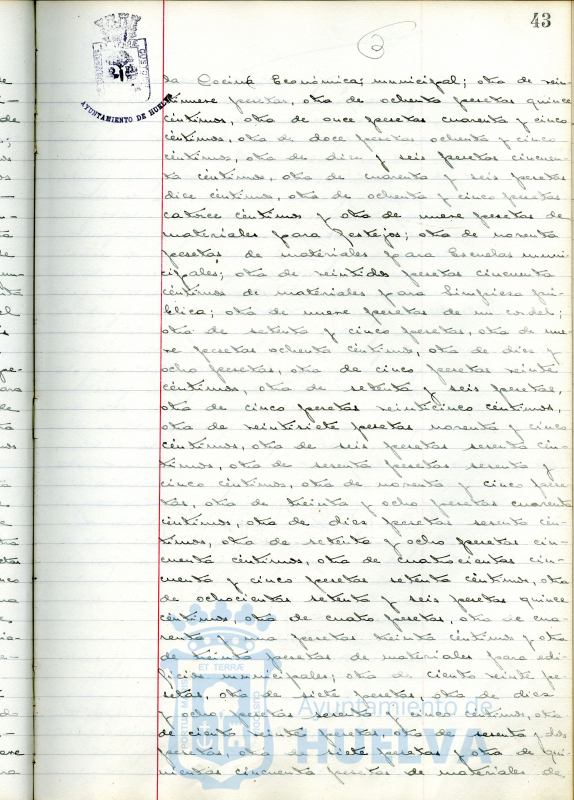 43
AYUNTAMIENTO DE HUELVA
la Cocina Económica municipal; otra de vein-
tinueve pesetas, otra de ochenta pesetas quince
céntimos, otra de once pesetas cuarenta y cinco
céntimos, otra de doce pesetas ochenta y cinco
céntimos, otra de diez y seis pesetas cincuen-
ta céntimos, otra de cuarenta y seis pesetas
diez céntimos, otra de ochenta y cinco pesetas
catorce céntimos y otra de nueve pesetas de
materiales para Festejos; otra de noventa
pesetas de materiales para Escuelas muni-
cipales; otra de veintidos pesetas cincuenta
céntimos de materiales para Limpieza pú-
blica; otra de nueve pesetas de un cordel;
otra de setenta y cinco pesetas, otra de nue-
ve pesetas ochenta céntimos, otra de diez y
ocho pesetas, otra de cinco pesetas veinte
céntimos, otra de setenta y seis pesetas,
otra de cinco pesetas veinticinco céntimos,
otra de veintisiete pesetas noventa y cinco
céntimos, otra de seis pesetas sesenta cén-
timos, otra de sesenta pesetas sesenta y
cinco céntimos, otra de noventa y cinco pese-
tas, otra de treinta y ocho pesetas cuarenta
céntimos, otra de diez pesetas sesenta cén-
timos, otra de setenta y ocho pesetas cin-
cuenta céntimos, otra de cuatrocientas cin-
cuenta y cinco pesetas setenta céntimos, otra
de ochocientas setenta y seis pesetas quince
céntimos, otra de cuatro pesetas, otra de cua-
renta y una pesetas treinta céntimos y otra
de treinta pesetas de materiales para edi-
ficios municipales; otra de ciento veinte pe-
setas, otra de siete pesetas, otra de diez
y ocho pesetas sesenta y cinco céntimos, otra
de ciento veinte pesetas, otra de sesenta y dos
pesetas, otra de siete pesetas y otra de qui-
nientas cincuenta pesetas de materiales de
Ayuntamiento de
HUELVA